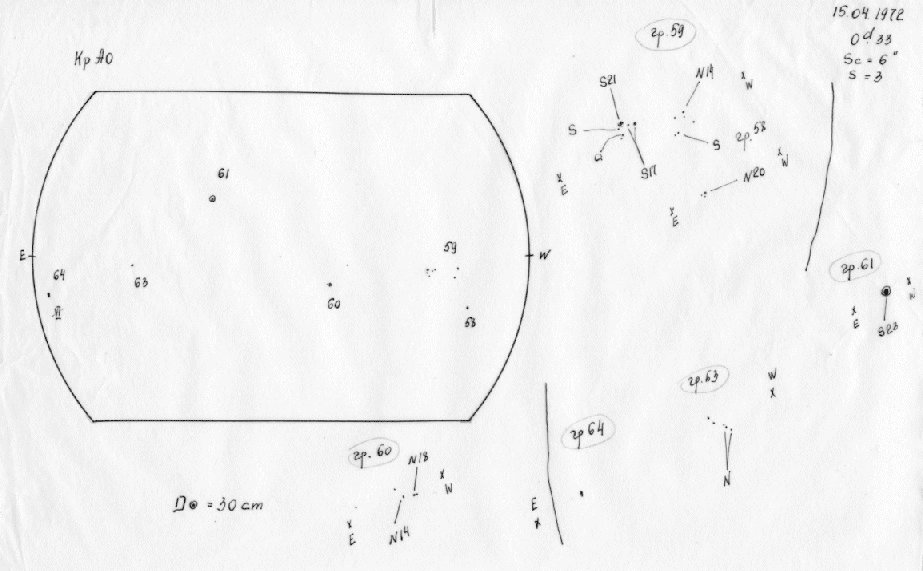 15.04.1972
0ᵈ.33
Sc = 6"
S = 3
Кр АО
гр.59
S21
N14
W
S
Q
S17
S
гр.58
W
E
N20
E
61
E
W
59
64
63
60
58
гр.61
W
E
S23
гр.63
W
N
гр.60
N18
W
E
N14
гр 64
E
D⊙ = 30 cm